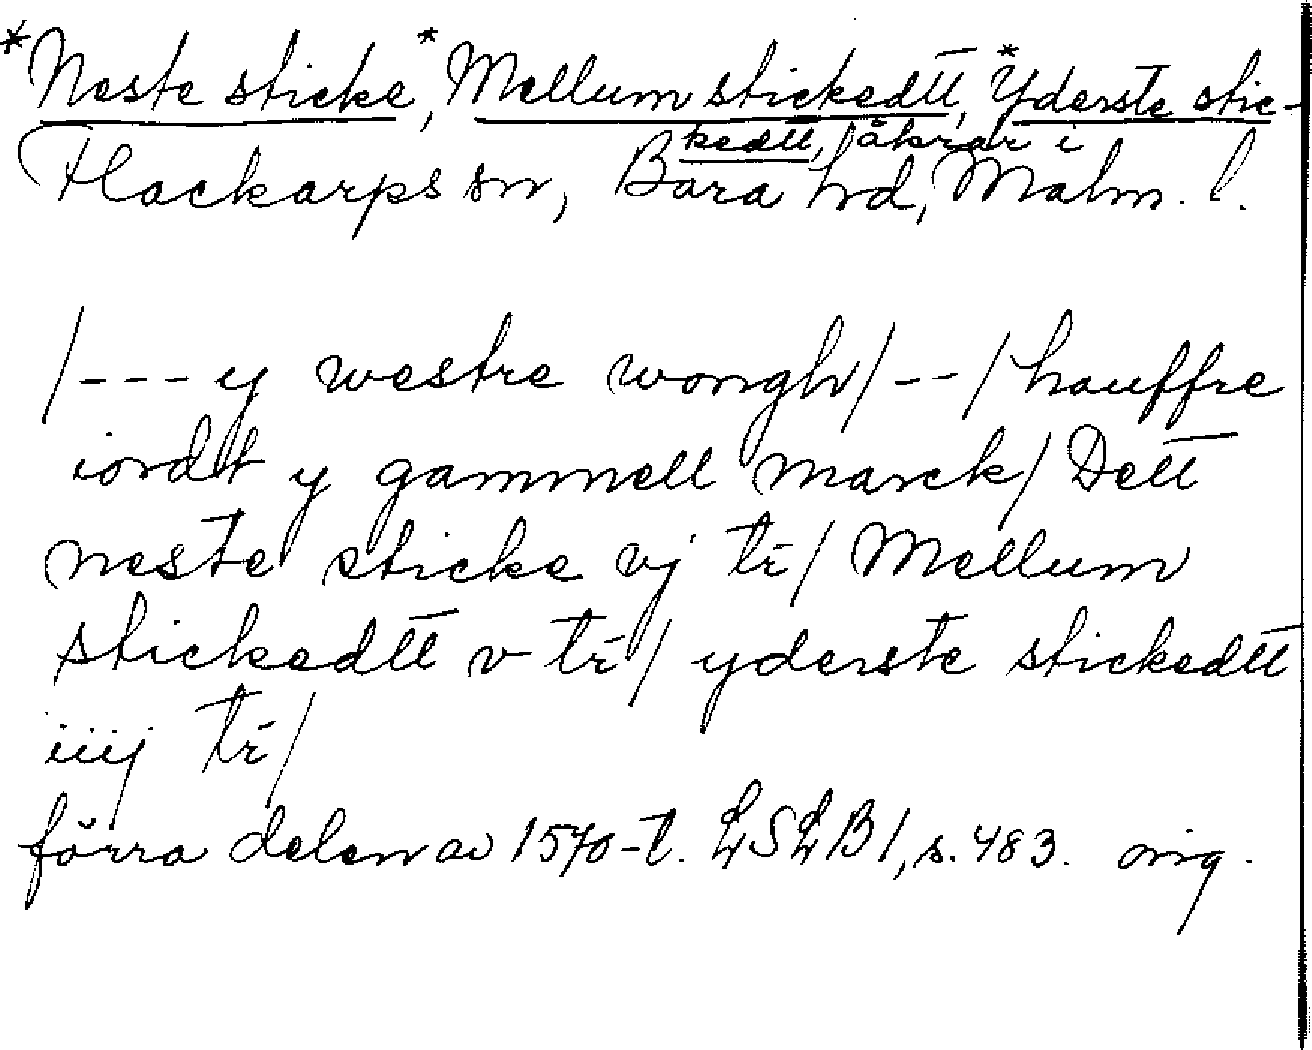 *Neste sticke, *Mellum stickedtt, *Yderste stic-
kedtt, åkrar i
Flackarps sn, Bara hd, Malm. l.
/--- y westre wongh/--/ hauffre
iordt y gammell marck/ Dett
neste sticke vj tr/ Mellum
stickedtt v tr/ yderste stickedtt
iiij tr/
förra delen av 1570-t. LSLB 1, s. 483. orig.